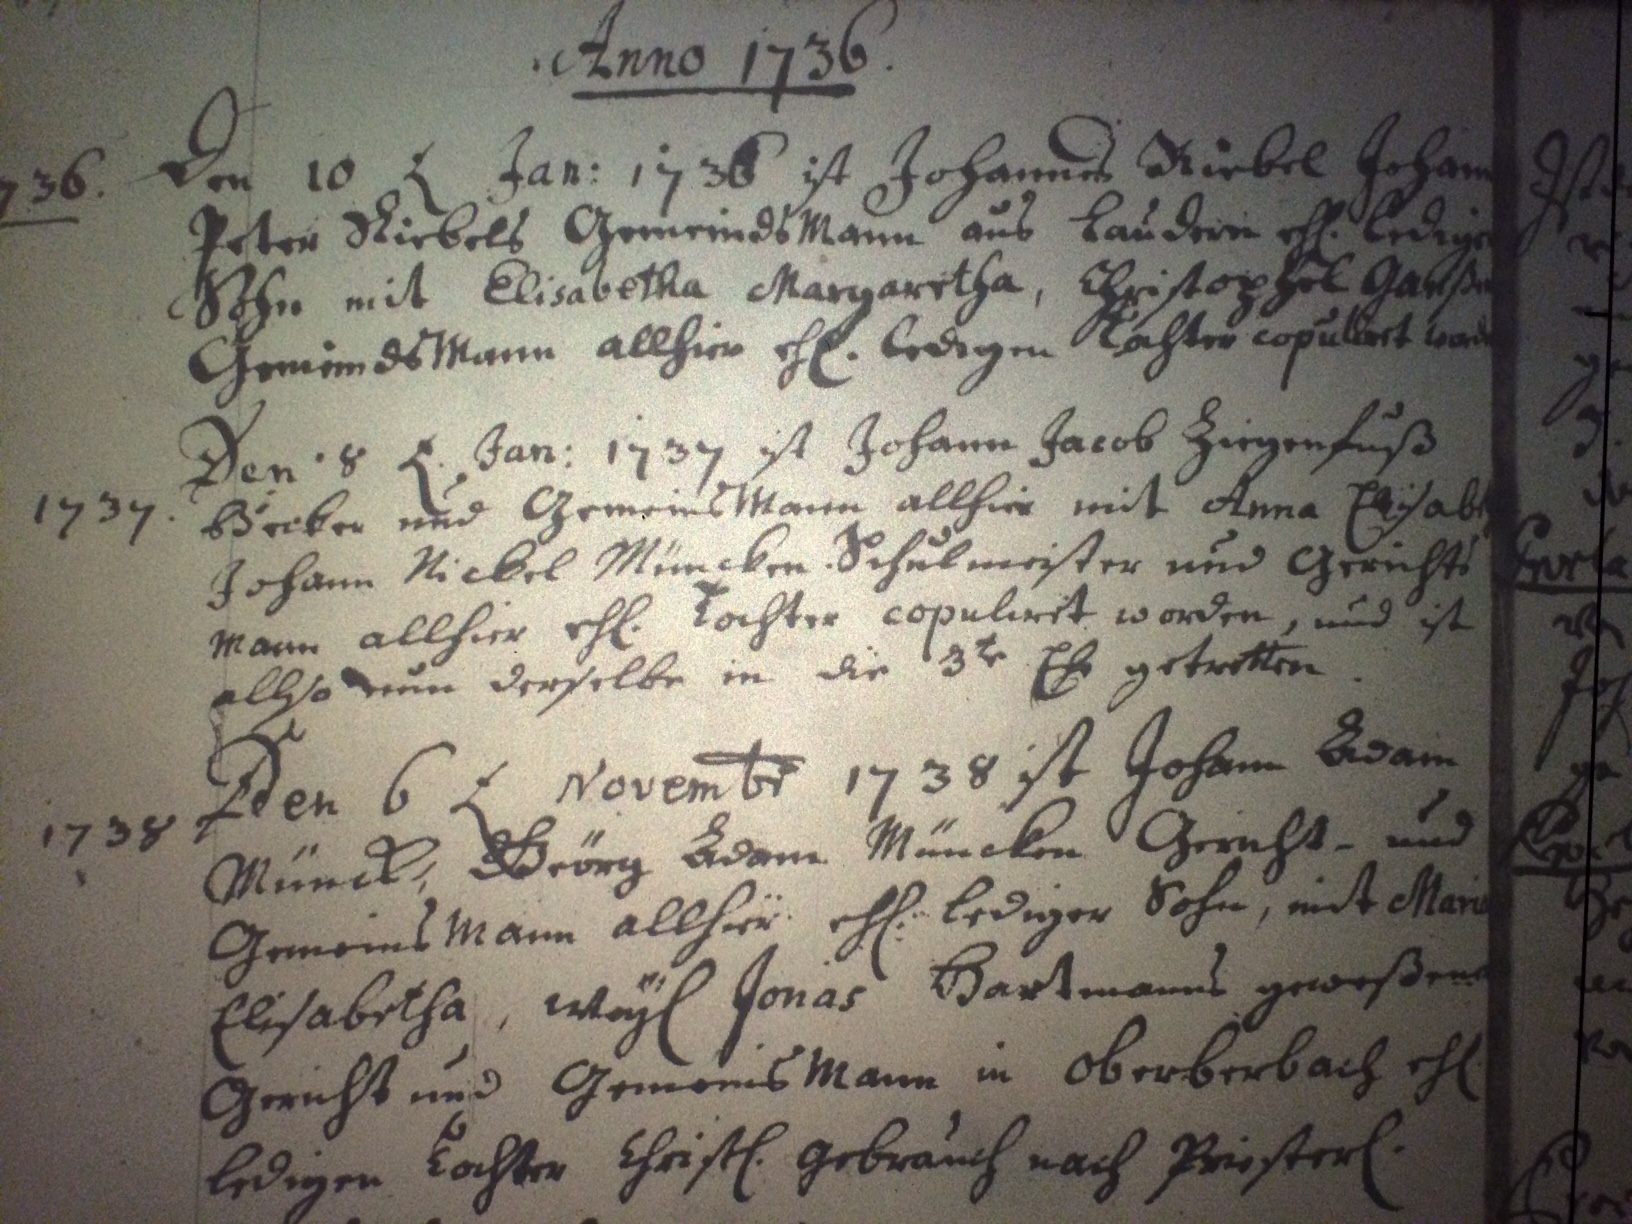 Anno 1736.
1736. Den 10 t. Jan: 1736 ist Johannes Riebel Johann
Peter Riebels Gemeindsmann aus Lauderen ehl. ledigen
Sohn mit Elisabetha Margaretha, Christophel
Gemeindsmann allhier ehl. ledigen Tochter copuliret worden
Den 8 t. Jan: 1737 ist Johann Jacob Ziegenfuß
1737. Becker und Gemeinsmann allhier mit Anna Elisabet
Johann Nickel Müncken Schulmeister und Gerichts
mann allhier ehl. Tochter copuliret worden, und ist
allso nun derselbe in die 3te Ehe getretten.
Den 6 t Novembr 1738 ist Johann Adam
1738 Münck, Geörg Adam Müncken Gericht- und
Gemeinsmann allhier ehl. lediger Sohn, mit Maria
Elisabetha, weÿl Jonas Hartmanns geweßenen
Gericht und Gemeinsmann in Oberberbach ehl
ledigen Tochter Christl. gebrauch nach Priesterl.